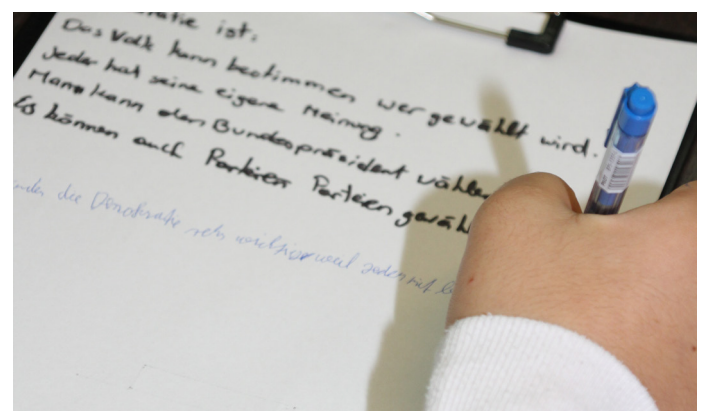 ist:
Das Volk kann bestimmen wer gewählt wird.
Jeder hat seine eigene Meinung.
Mann kann den Bundespräsident wählen
Es können auch Parteien Parteien gewähl
die Demokratie sehr wichtig weil jeder mit